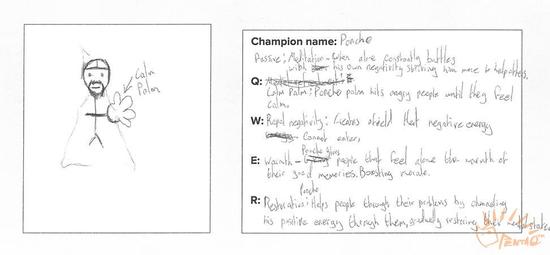 Calm
Palm
Champion name: Poncho
Passive: Meditation - when alone constantly battles
with his own negativity striving him more to help others.
Q:
Calm Palm: Poncho palm hits angry people until they feel
calm.
W: Repel negativity: Creates shield that negative energy
Cannot enter.
E: Warmth - Poncho gives people that feel alone the warmth of
their good memories. Boosting morale.
R: Restoration: Poncho Helps people through their problems by channeling
his positive energy through them, gradually restoring their mental state
PENTAQ